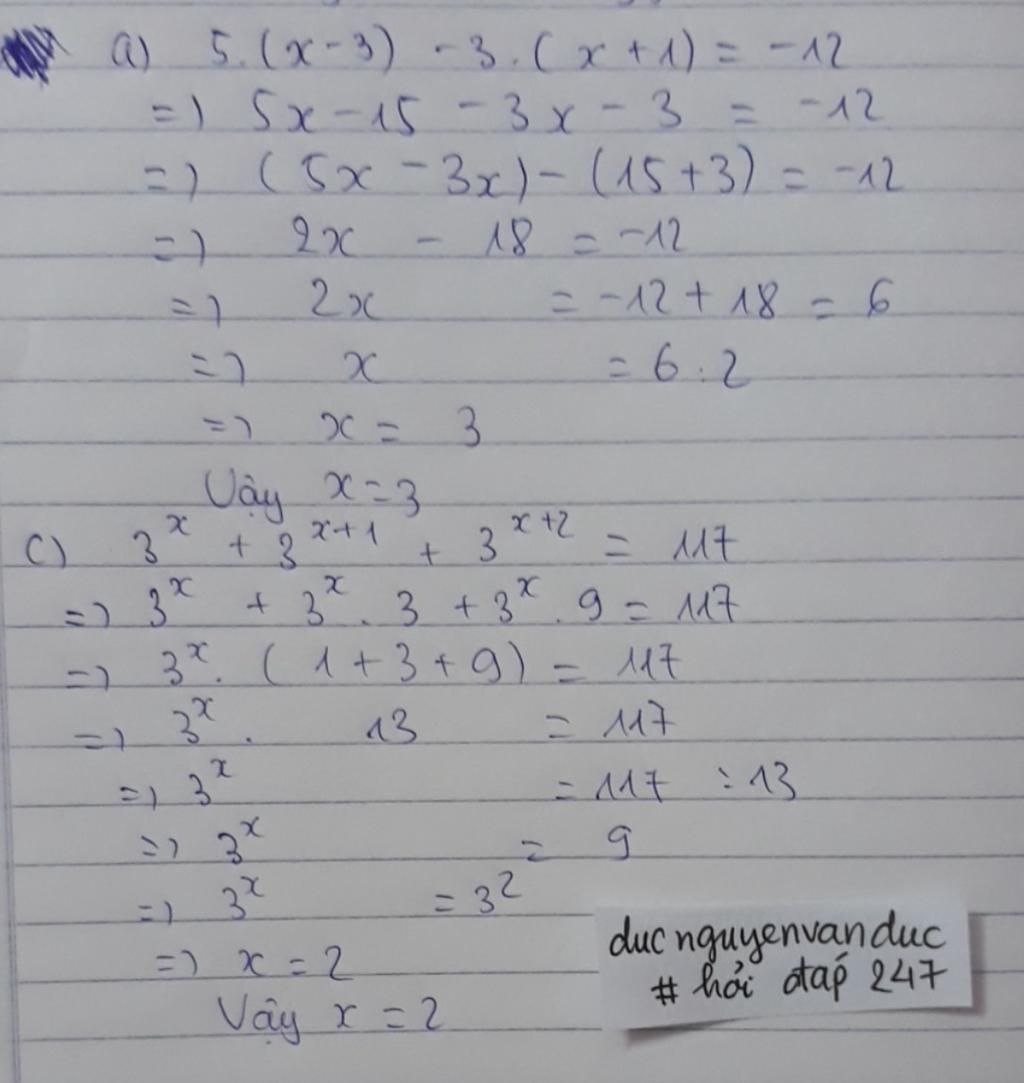 a) 5.(x-3) -3.(x+1) = -12
=) 5x - 15 - 3x - 3 = -12
=) (5x - 3x) - (15+3) = -12
=) 2x - 18 = -12
=) 2x = -12 + 18 = 6
=) x = 6:2
=) x = 3
Vậy x = 3
C) 3^x + 3^{x+1} + 3^{x+2} = 117
=) 3^x + 3^x . 3 + 3^x . 9 = 117
=) 3^x . (1+3+9) = 117
=) 3^x . 13 = 117
=) 3^x = 117 : 13
=) 3^x = 9
=) 3^x = 3^2
=) x = 2
Vậy x = 2
ducnguyenvanduc
# hỏi đáp 247